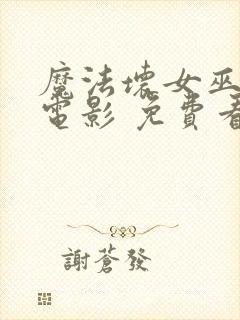 魔法壞女巫
電影 免費看
謝蒼發